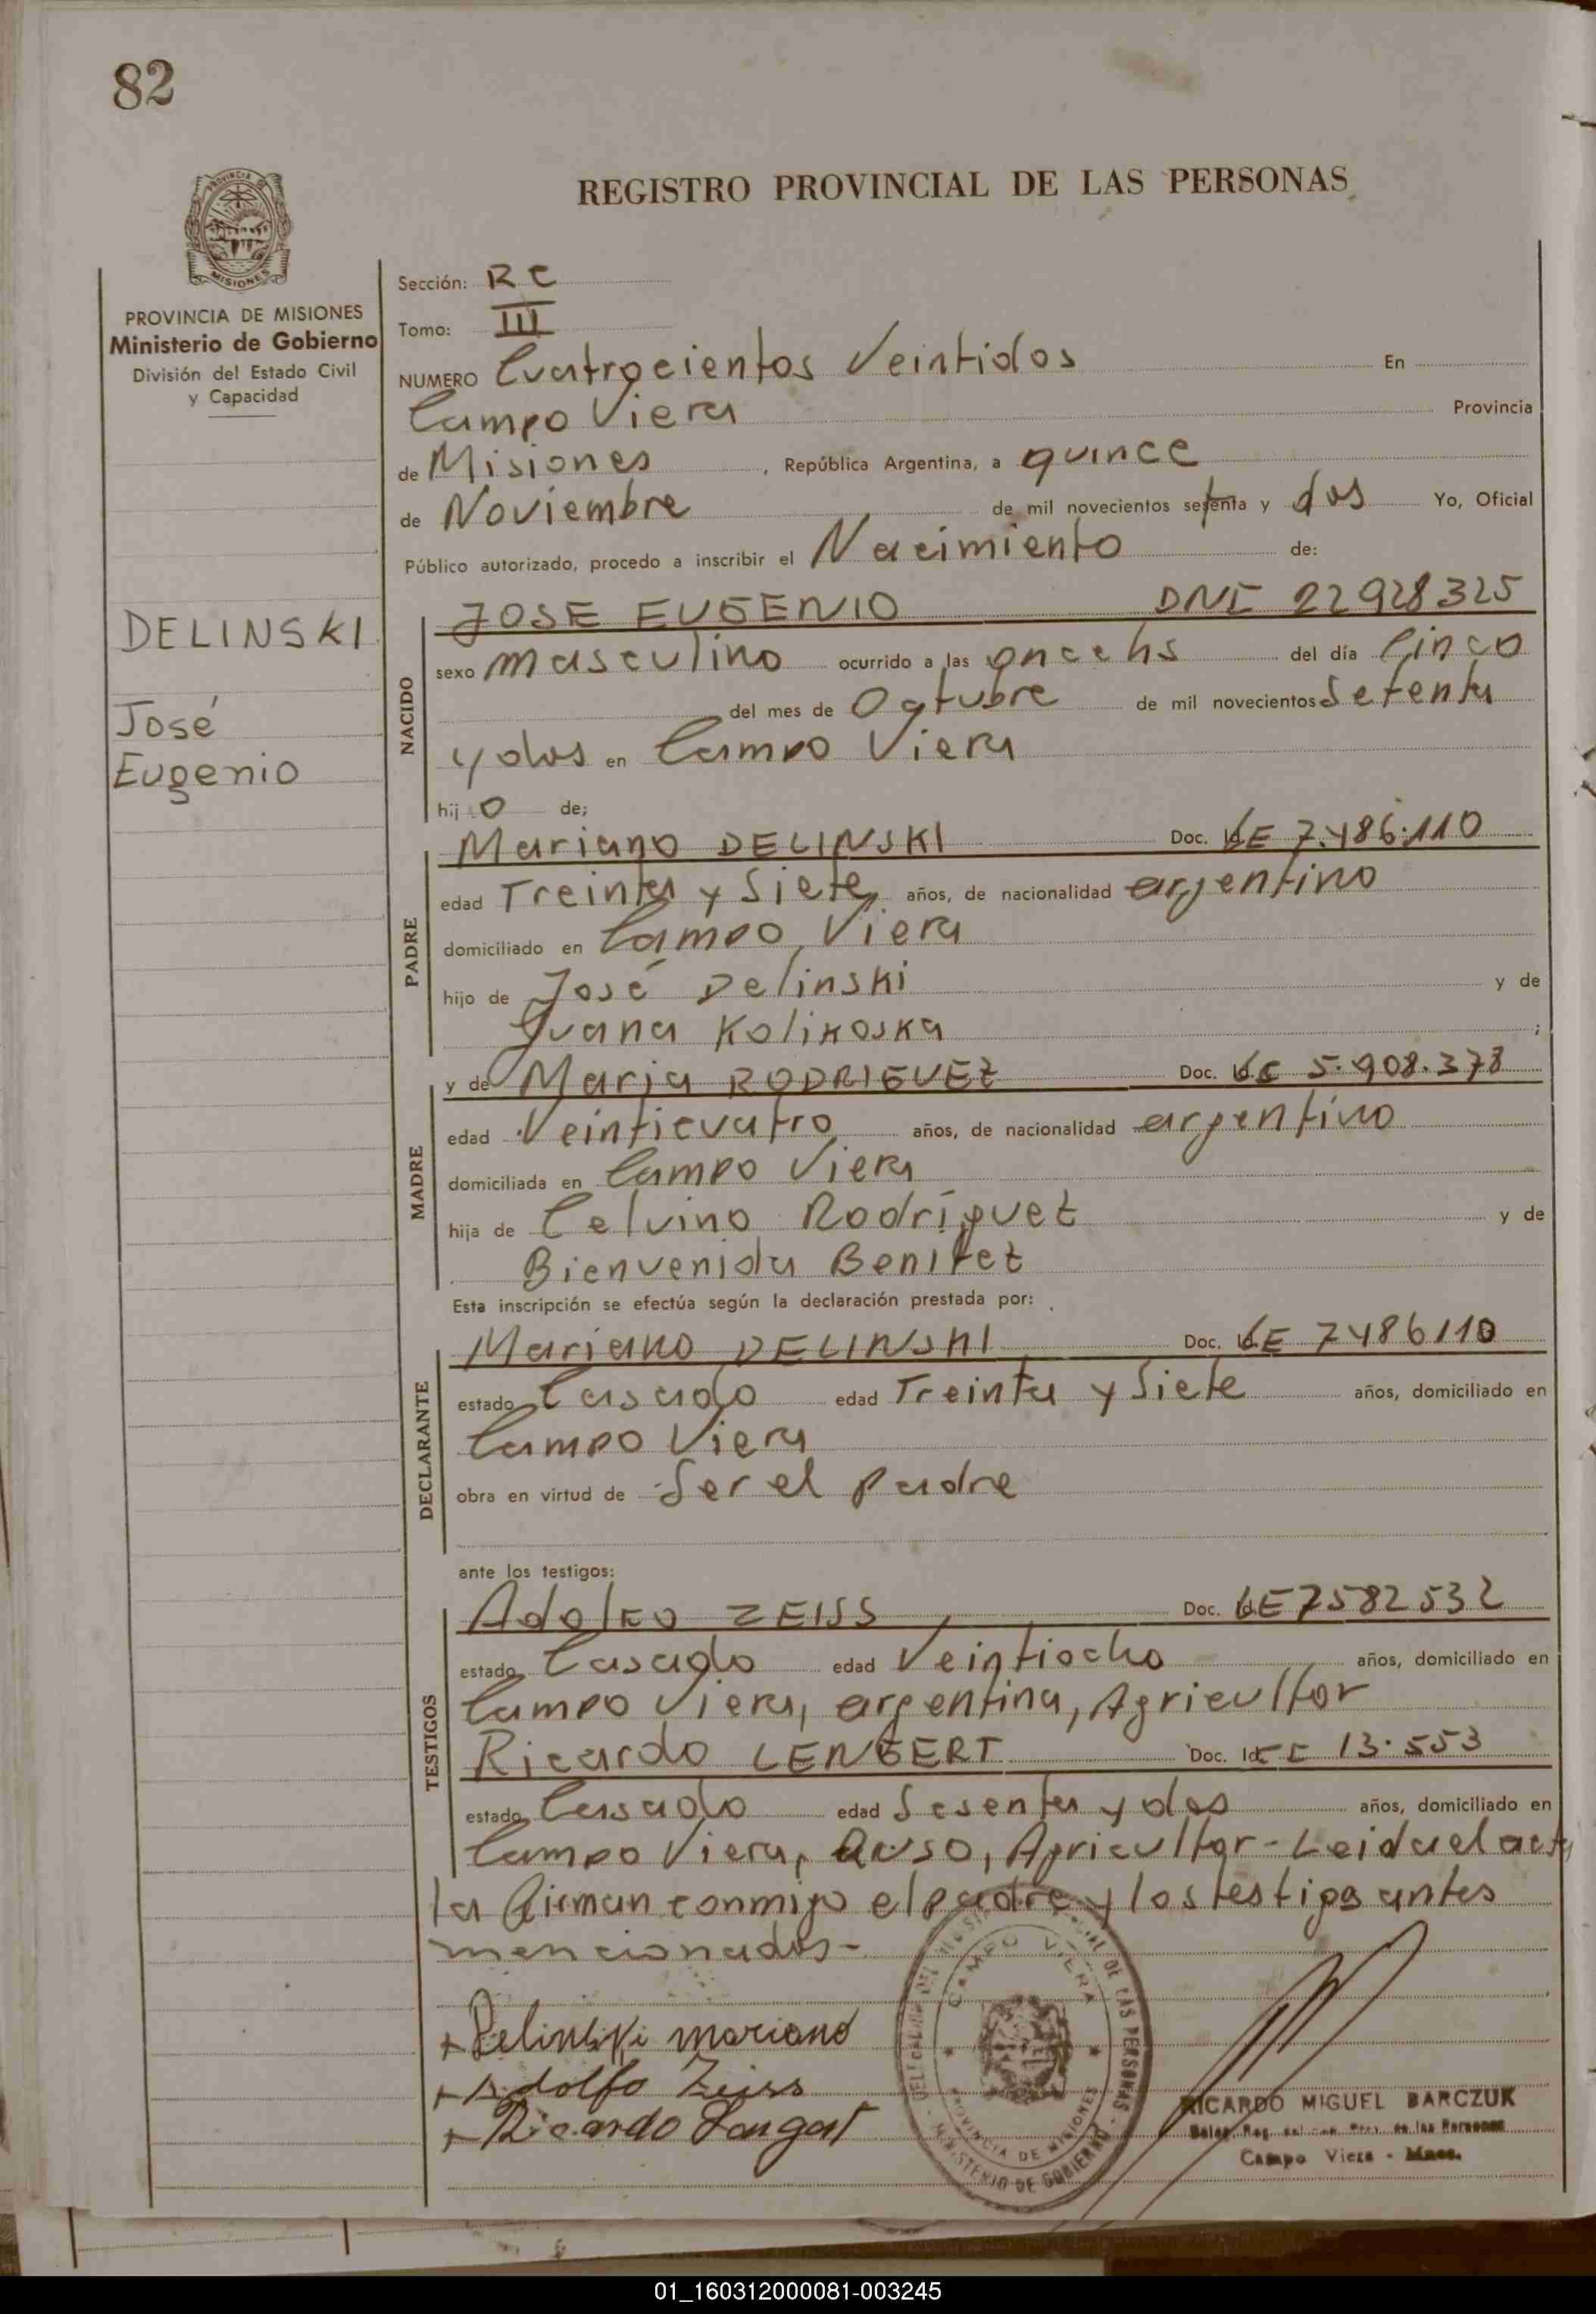 82
REGISTRO PROVINCIAL DE LAS PERSONAS
PROVINCIA
MISIONES
PROVINCIA DE MISIONES
Ministerio de Gobierno
División del Estado Civil
y Capacidad
DELINSKI
José
Eugenio
Sección: RC
Tomo: III
NUMERO Cuatrocientos Veintidos En
Campo Viera Provincia
de Misiones, República Argentina, a quince
de Noviembre de mil novecientos setenta y dos Yo, Oficial
Público autorizado, procedo a inscribir el Nacimiento de:
NACIDO
JOSE EUGENIO DNI 22928325
sexo masculino ocurrido a las once hs del día Cinco
del mes de Octubre de mil novecientos Setenta
y dos en Campo Viera
hijo de;
PADRE
Mariano DELINSKI Doc. Id. LE 7.486.110
edad Treinta y Siete años, de nacionalidad argentino
domiciliado en Campo Viera
hijo de José Delinski y de
Juana Kolikoska;
MADRE
y de Maria RODRIGUEZ Doc. Id. LC 5.908.378
edad Veinticuatro años, de nacionalidad argentino
domiciliada en Campo Viera
hija de Celvino Rodríguez y de
Bienvenida Benitez
Esta inscripción se efectúa según la declaración prestada por:
DECLARANTE
Mariano DELINSKI Doc. Id. LE 7486110
estado Casado edad Treinta y Siete años, domiciliado en
Campo Viera
obra en virtud de Ser el padre
ante los testigos:
TESTIGOS
Adolfo ZEISS Doc. Id. LE 7582532
estado Casado edad Veintiocho años, domiciliado en
Campo Viera, argentina, Agricultor
Ricardo LENGERT Doc. Id. CE 13.553
estado Casado edad Sesenta y dos años, domiciliado en
Campo Viera, Ruso, Agricultor - Leida el acta
la firman conmigo el padre y los testigos antes
mencionados -
+ Delinski mariano
+ Adolfo Zeiss
+ Ricardo Langart
CAMPO VIERA
DE LAS PERSONAS
PROVINCIA DE MISIONES
MINISTERIO DE GOBIERNO
RICARDO MIGUEL BARCZUK
de las Personas
Campo Viera - Mnes.
01_160312000081-003245